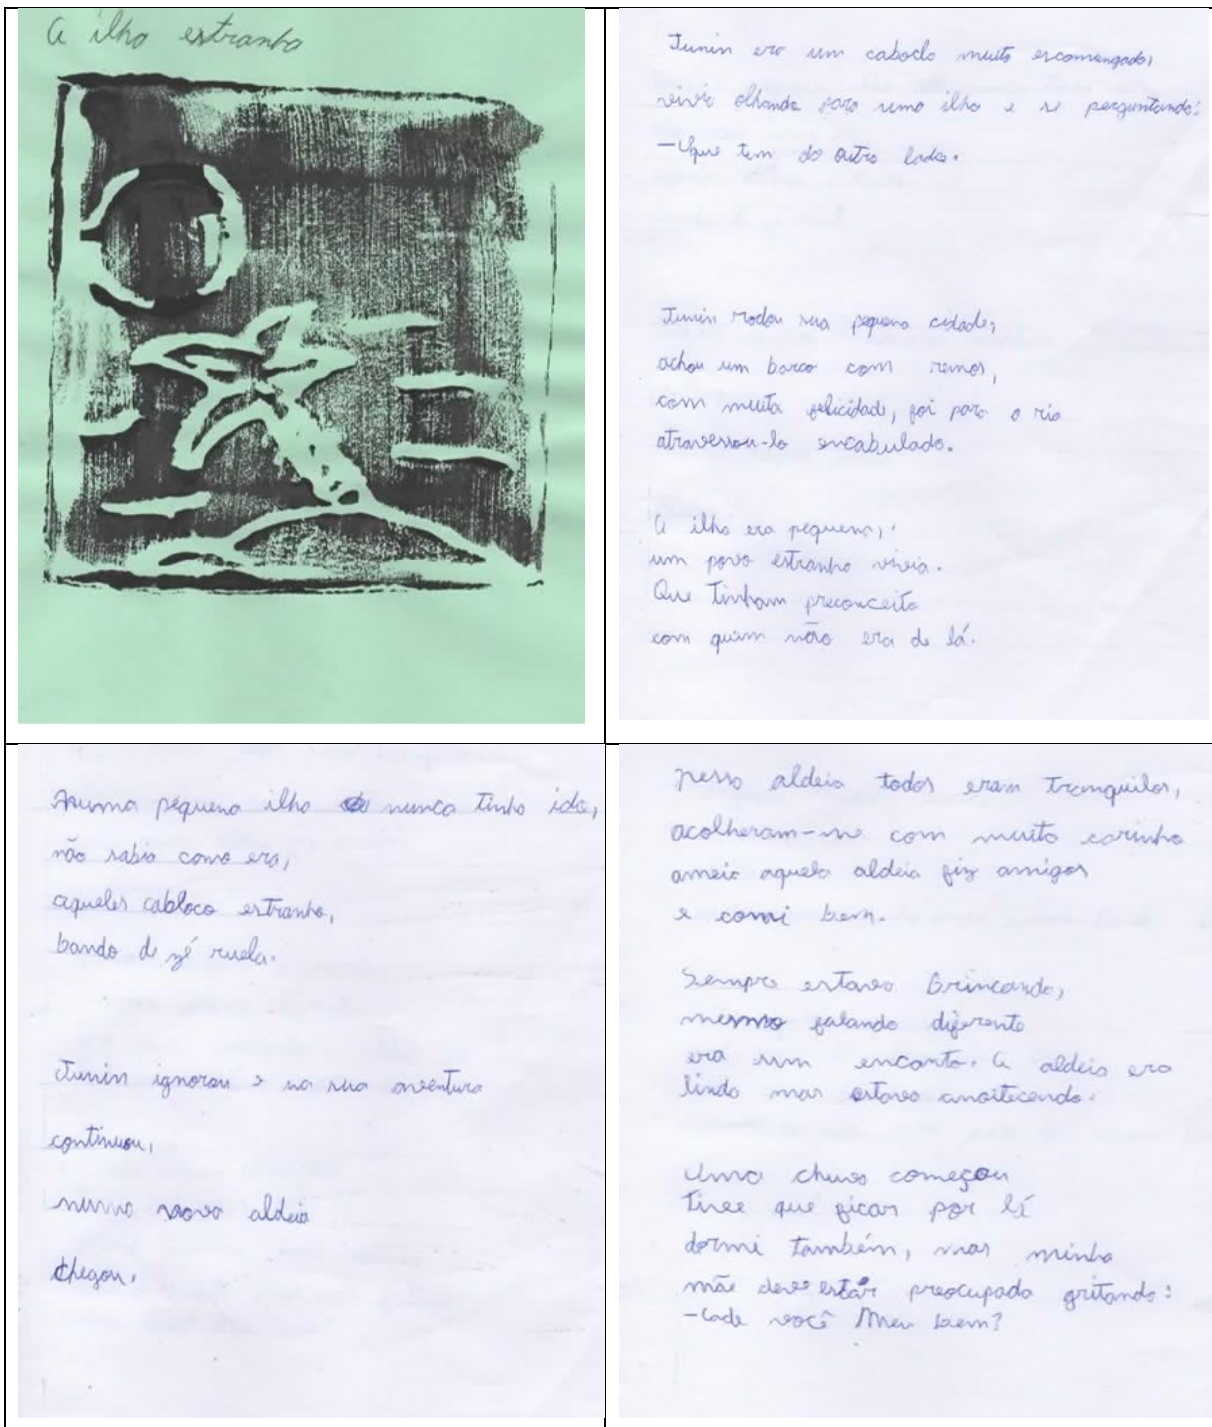 A ilha estranha
Junin era um caboclo muito escomungado,
vivia olhando para uma ilha e se perguntando:
—O que tem do outro lado.
Junin rodou sua pequena cidade,
achou um barco com remos,
com muita felicidade, foi para o rio
atravessou-lo encabulado.
A ilha era pequena,
um povo estranho vivia.
Que tinham preconceito
com quem não era de lá.
Numa pequena ilha nunca tinha ido,
não sabia como era,
aqueles cabloco estranho,
bando de zé ruela.
Junin ignorou e na sua aventura
continuou,
numa nova aldeia
chegou.
nessa aldeia todos eram tranquilos,
acolheram-me com muito carinho
ameio aquela aldeia fiz amigos
e comi bem.
Sempre estava brincando,
mesmo falando diferente
era um encanto. A aldeia era
linda mas estava anoitecendo.
Uma chuva começou
tive que ficar por lá
dormi também, mas minha
mãe deve estar preocupada gritando:
-Cade você Meu bem?